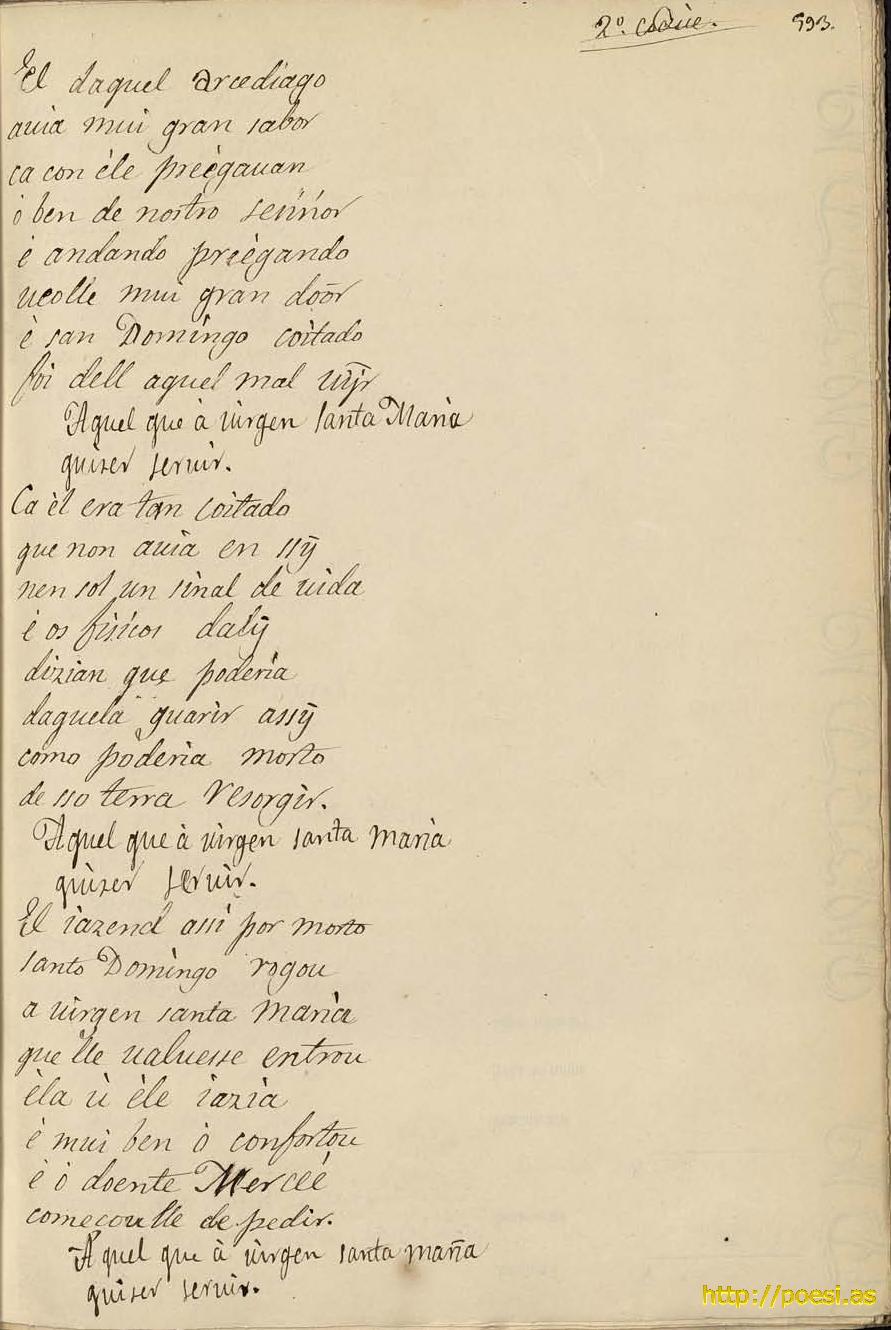 2º códice. 593.
El daquel arcediago
auia mui gran sabor
ca con éle preégauan
ó ben de nostro sennor
é andando preégando
ueolle mui gran door
é san Domingo coitado
foi dell aquel mal uijr
Aquel que à uirgen santa Maria
quiser seruir.
Ca él era tan coitado
que non auia en ssy
nen sol un sinal de uida
é os fisicos daly
dizian que poderia
daquela guarir assy
como poderia morto
de sso terra resorgir.
Aquel que à uirgen santa maria
quiser seruir.
El iazend assi por morto
santo Domingo rogou
a uirgen santa maria
que lle ualuesse entrou
éla ù éle iazia
é mui ben ó confortou
é ó doente Merceé
comecoulle de pedir.
Aquel que à uirgen santa maria
quiser seruir.
http://poesi.as